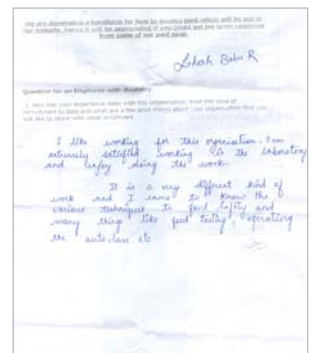 we are developing a handbook for how to involve pwd which will be put in
our website, hence it will be appreciated if you could get me some response
from some of our pwd staff.
Lokesh Babu R
Question for an Employee with disability
1. How has your experience been with this organisation, from the time of
recruitment to date and what are a few good things about your organisation that you
would like to share with other employers.
I like working for this organisation. I am
extremely satisfied working in the laboratory
and enjoy doing the work.
It is a very different kind of
work and I came to know the
various techniques to food safety and
many things like food testing, operating
the autoclave etc.